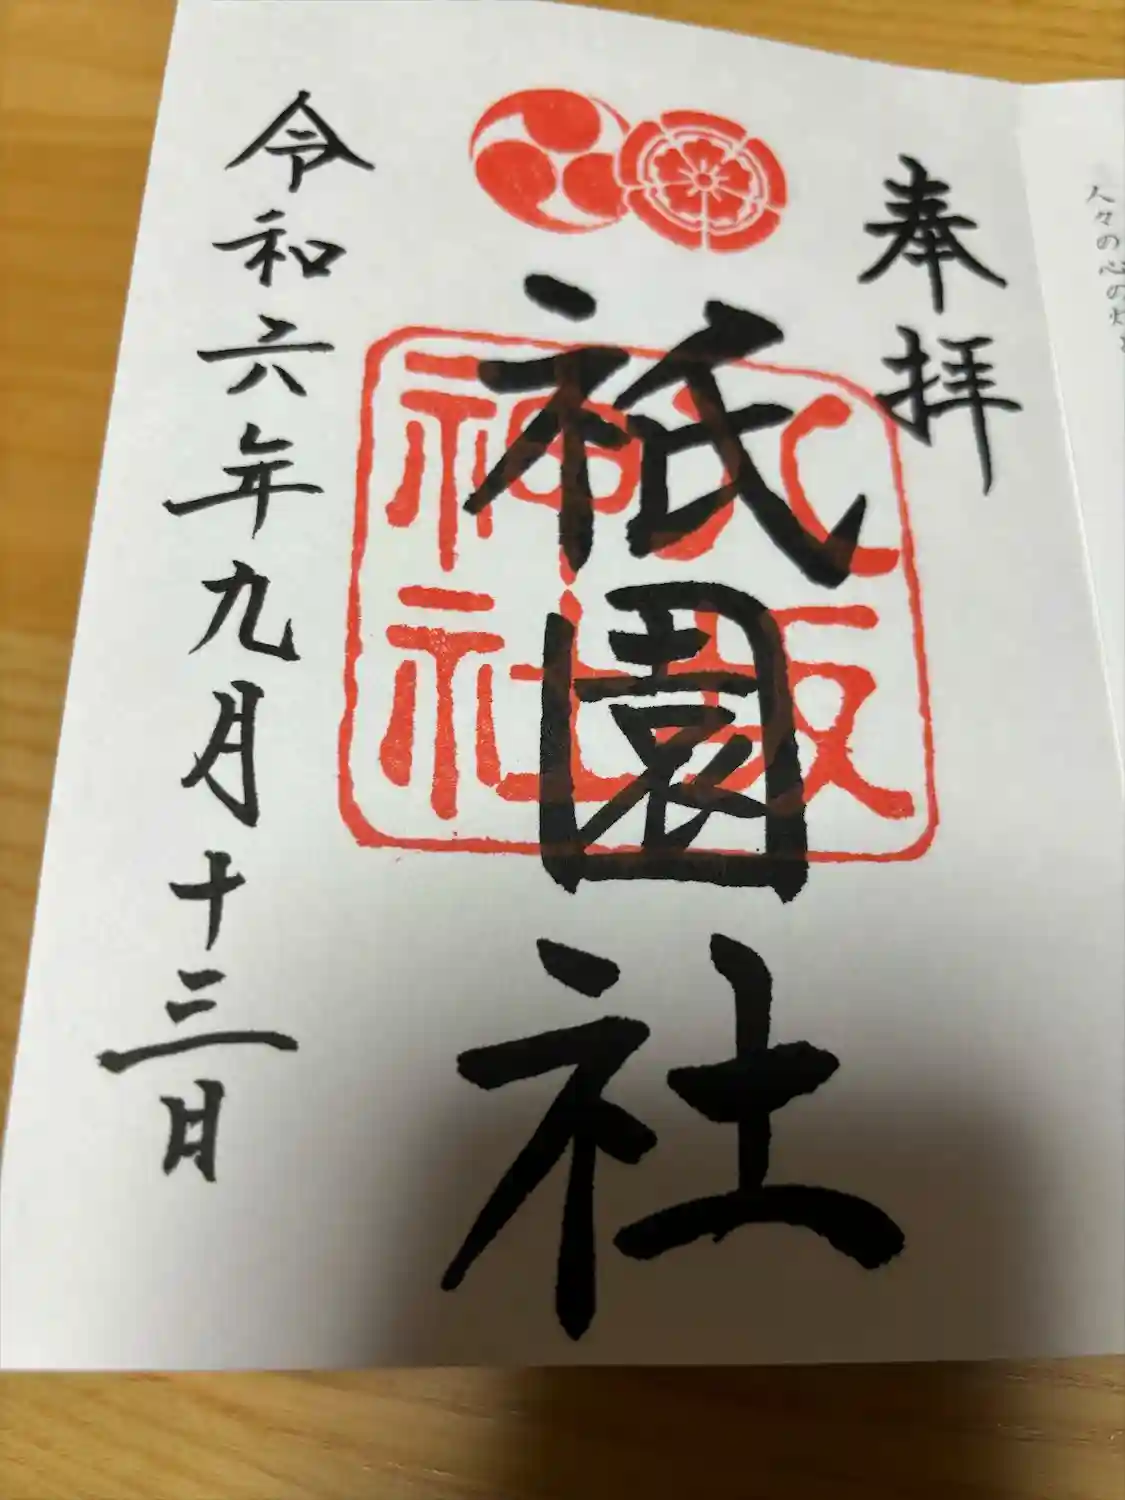 人々の心の灯
奉拝
祇園社
八坂
神社
令和六年九月十三日